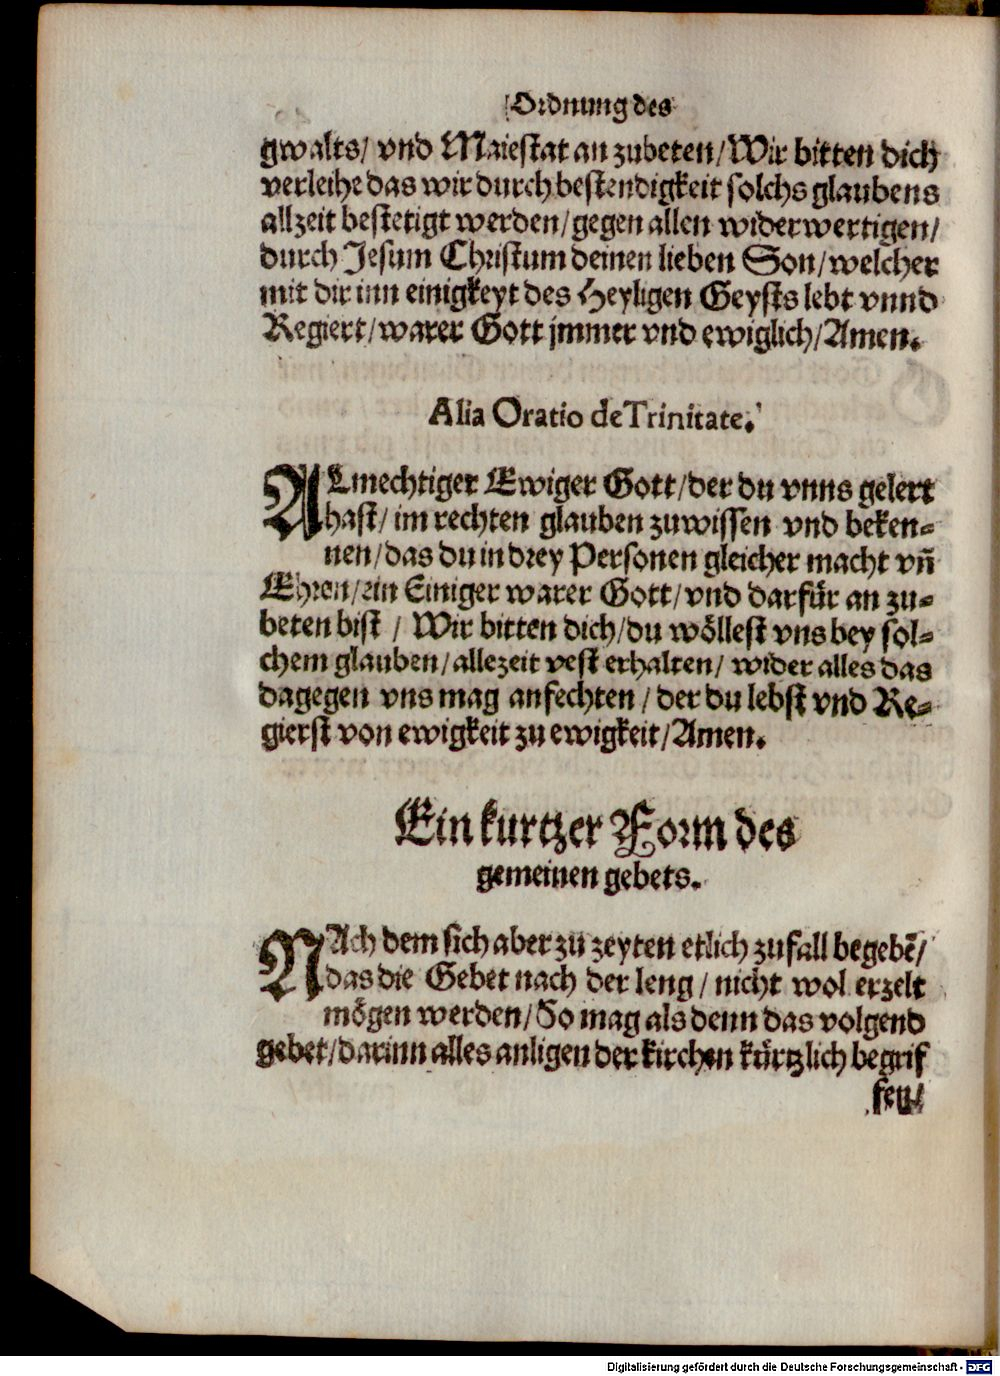 Ordnung des
gwalts/ vnd Maiestat an zubeten/Wir bitten dich
verleihe das wir durch bestendigkeit solchs glaubens
allzeit bestetigt werden/gegen allen widerwertigen/
durch Jesum Christum deinen lieben Son/welcher
mit dir inn einigkeyt des Heyligen Geysts lebt vnnd
Regiert/warer Gott jmmer vnd ewiglich/Amen.
Alia Oratio de Trinitate.
ALmechtiger Ewiger Gott/der du vnns gelert
hast/ im rechten glauben zuwissen vnd beken-
nen/das du in drey Personen gleicher macht vñ
Ehren/ein Einiger warer Gott/vnd darfür an zu-
beten bist / Wir bitten dich/du wöllest vns bey sol-
chem glauben/allezeit vest erhalten/ wider alles das
dagegen vns mag anfechten / der du lebst vnd Re-
gierst von ewigkeit zu ewigkeit/Amen.
Ein kurtzer Form des
gemeinen gebets.
NAch dem sich aber zu zeyten etlich zufall begebē/
das die Gebet nach der leng / nicht wol erzelt
mögen werden/So mag als denn das volgend
gebet/darinn alles anligen der kirchen kürtzlich begrif
fen/
Digitalisierung gefördert durch die Deutsche Forschungsgemeinschaft - DFG